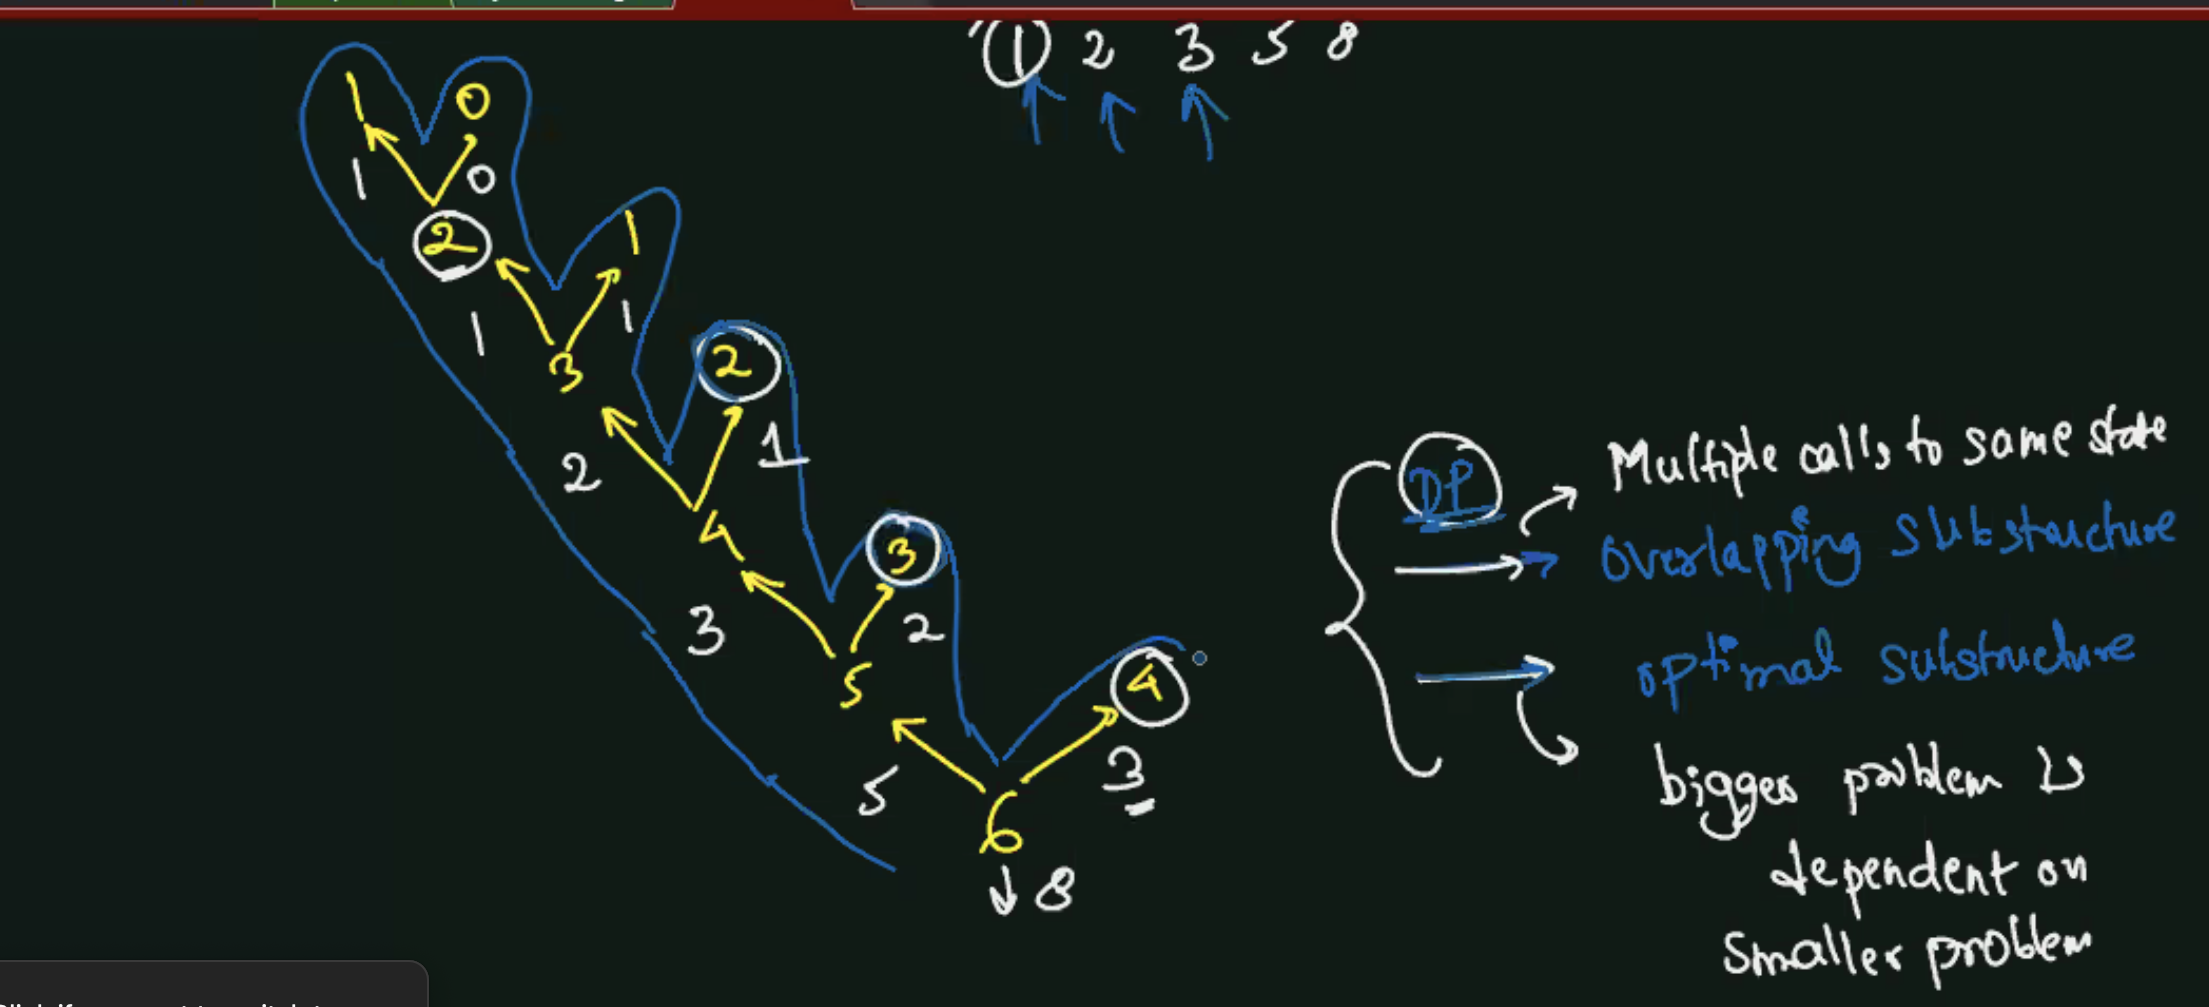 1 2 3 5 8
1 0
1 0
2
1
1 1
3
2
2 1
4
3
3 2
5
4
5 3
6
8
DP
Multiple calls to same state
overlapping substructure
optimal substructure
bigger problem is
dependent on
smaller problem